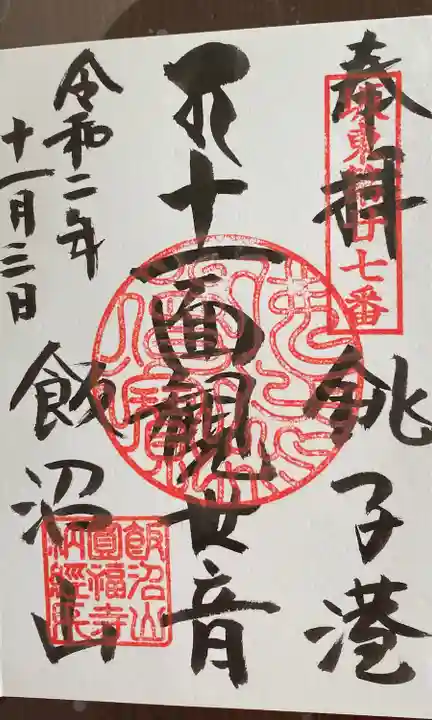 奉拝 銚子港
坂東第廿七番
十一面観世音
飯沼山
令和二年
十一月三日
飯沼山
圓福寺
納経